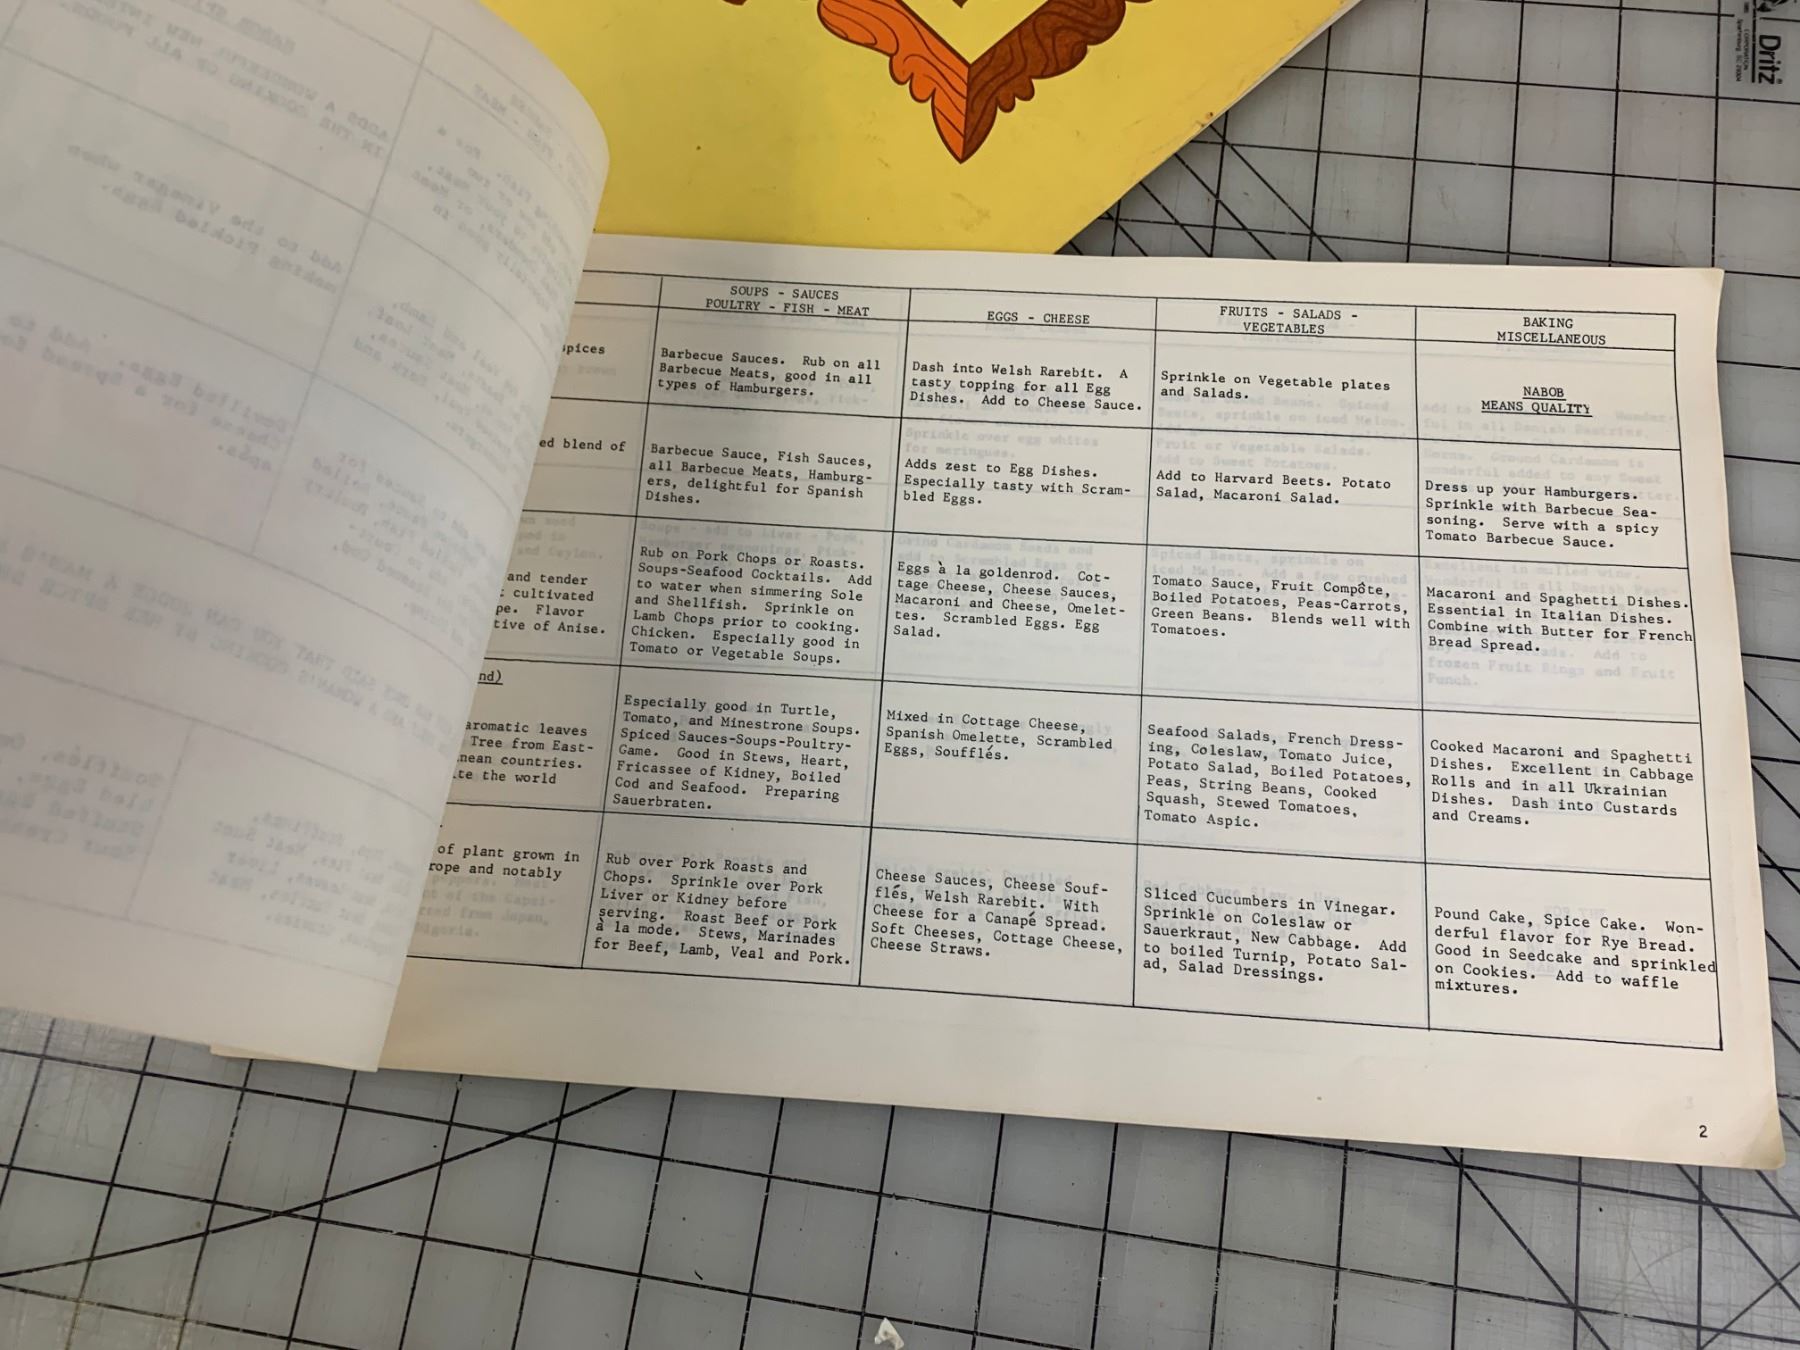 Dritz
CORPORATION
SOUPS - SAUCES
POULTRY - FISH - MEAT
EGGS - CHEESE
FRUITS - SALADS -
VEGETABLES
BAKING
MISCELLANEOUS
spices
Barbecue Sauces. Rub on all
Barbecue Meats, good in all
types of Hamburgers.
Dash into Welsh Rarebit. A
tasty topping for all Egg
Dishes. Add to Cheese Sauce.
Sprinkle on Vegetable plates
and Salads.
NABOB
MEANS QUALITY
ed blend of
Barbecue Sauce, Fish Sauces,
all Barbecue Meats, Hamburg-
ers, delightful for Spanish
Dishes.
Adds zest to Egg Dishes.
Especially tasty with Scram-
bled Eggs.
Add to Harvard Beets. Potato
Salad, Macaroni Salad.
Dress up your Hamburgers.
Sprinkle with Barbecue Sea-
soning. Serve with a spicy
Tomato Barbecue Sauce.
and tender
cultivated
pe. Flavor
tive of Anise.
Rub on Pork Chops or Roasts.
Soups-Seafood Cocktails. Add
to water when simmering Sole
and Shellfish. Sprinkle on
Lamb Chops prior to cooking.
Chicken. Especially good in
Tomato or Vegetable Soups.
Eggs à la goldenrod. Cot-
tage Cheese, Cheese Sauces,
Macaroni and Cheese, Omelet-
tes. Scrambled Eggs. Egg
Salad.
Tomato Sauce, Fruit Compôte,
Boiled Potatoes, Peas-Carrots,
Green Beans. Blends well with
Tomatoes.
Macaroni and Spaghetti Dishes.
Essential in Italian Dishes.
Combine with Butter for French
Bread Spread.
nd)
aromatic leaves
Tree from East-
nean countries.
te the world
Especially good in Turtle,
Tomato, and Minestrone Soups.
Spiced Sauces-Soups-Poultry-
Game. Good in Stews, Heart,
Fricassee of Kidney, Boiled
Cod and Seafood. Preparing
Sauerbraten.
Mixed in Cottage Cheese,
Spanish Omelette, Scrambled
Eggs, Soufflés.
Seafood Salads, French Dress-
ing, Coleslaw, Tomato Juice,
Potato Salad, Boiled Potatoes,
Peas, String Beans, Cooked
Squash, Stewed Tomatoes,
Tomato Aspic.
Cooked Macaroni and Spaghetti
Dishes. Excellent in Cabbage
Rolls and in all Ukrainian
Dishes. Dash into Custards
and Creams.
of plant grown in
rope and notably
Rub over Pork Roasts and
Chops. Sprinkle over Pork
Liver or Kidney before
serving. Roast Beef or Pork
à la mode. Stews, Marinades
for Beef, Lamb, Veal and Pork.
Cheese Sauces, Cheese Souf-
flés, Welsh Rarebit. With
Cheese for a Canapé Spread.
Soft Cheeses, Cottage Cheese,
Cheese Straws.
Sliced Cucumbers in Vinegar.
Sprinkle on Coleslaw or
Sauerkraut, New Cabbage. Add
to boiled Turnip, Potato Sal-
ad, Salad Dressings.
Pound Cake, Spice Cake. Won-
derful flavor for Rye Bread.
Good in Seedcake and sprinkled
on Cookies. Add to waffle
mixtures.
2